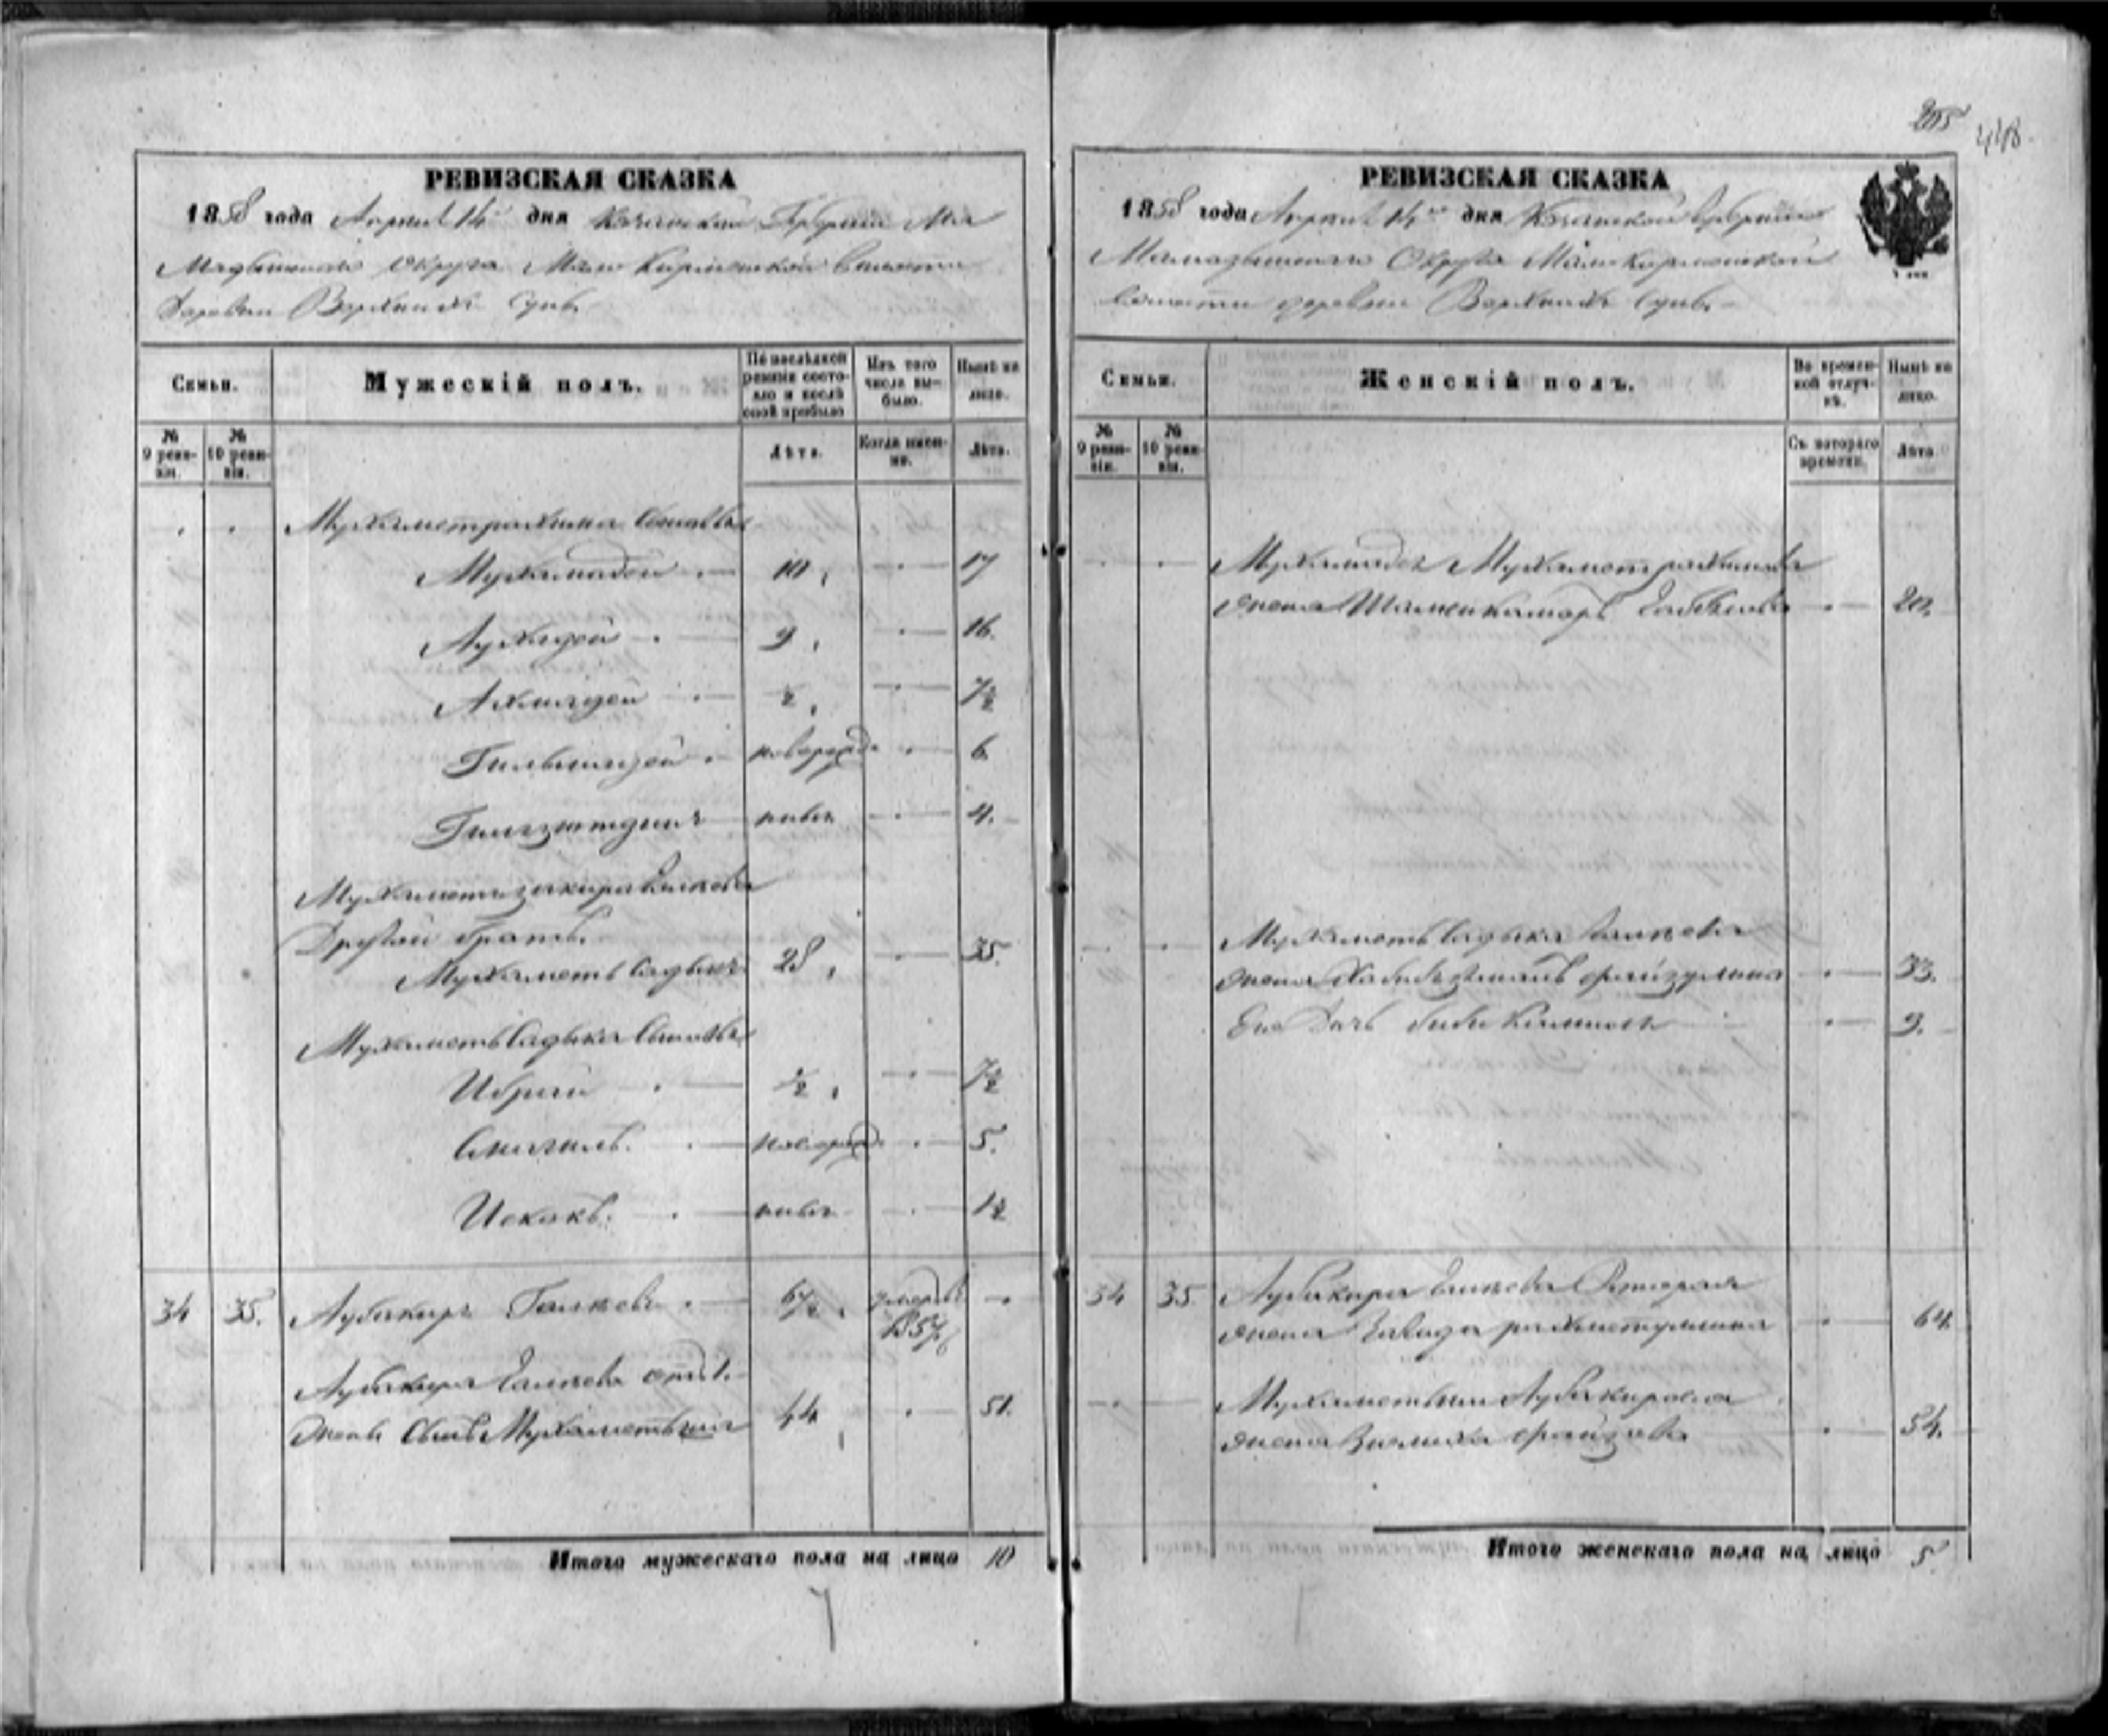 205
448.
РЕВИЗСКАЯ СКАЗКА
1858 года Апреля 14 дня Казанской Губернии Ма
мадышскаго Округа Мало Кирменской волости
деревни Верхнихъ Сунь
Семьи.
Мужескій полъ.
По послѣдней ревизіи состояло и послѣ оной прибыло
Изъ того числа выбыло.
Нынѣ на лицо.
№ 9 ревизіи.
№ 10 ревизіи.
Лѣта.
Когда именно.
Лѣта.
Мухаметрахима сыновья
Мухамадей 10 17
Аухадей 9 16.
Ахмадей ½ 7½
Гильмадей новорожд. 6
новъ 4.
Галкова
Другой братъ
Мухаметь Садыкъ 28 35.
Мухаметь Садыка сыновья
Ибрай ½ 7½
Смагиль. новорожд. 5.
Исхакъ. новъ 1½
34 35. Аубакиръ Галкевъ 67½ умеръ
1857
Аубакира Галкева отъ 1.
жены сынъ Мухаметьша 44 51.
Итого мужескаго пола на лицо 10
РЕВИЗСКАЯ СКАЗКА
1858 года Апреля 14 дня Казанской Губернии
Мамадышскаго Округа Мало Кирменской
волости деревни Верхнихъ Сунь
Семьи.
Женскій полъ.
Во временной отлучкѣ.
Нынѣ на лицо.
№ 9 ревизіи.
№ 10 ревизіи.
Съ котораго времени.
Лѣта
Мухамадея Мухаметрахимова
жена 20.
Мухаметь Садыка Галкева
жена Файзулина 33.
Его дочь Биби 9.
34 35. Аубакира Галкева вторая
жена Рахметуллина 64
Мухаметьши Аубакирова
жена Файзова 54.
Итого женскаго пола на лицо 5